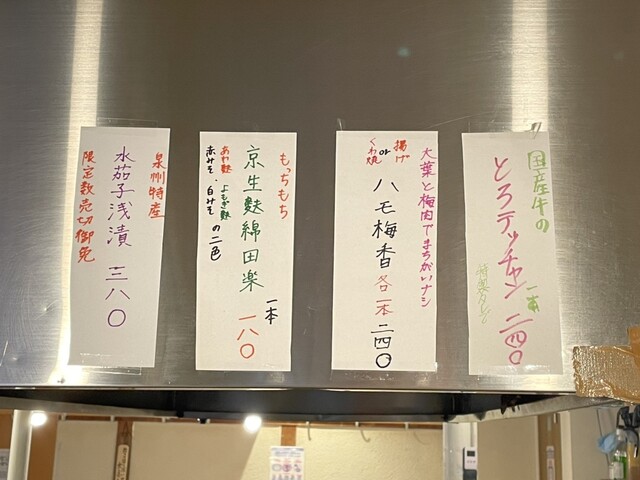 国産牛の
とろテッチャン 一本 二四〇
特製タレ
大葉と梅肉でまちがいナシ
揚げ
or
くわ焼
ハモ梅香 各一本 二四〇
もっちもち
京生麩綿田楽 一本 一八〇
あわ麩 よもぎ麩
赤みそ・白みその二色
泉州特産
水茄子浅漬 三八〇
限定数売切御免